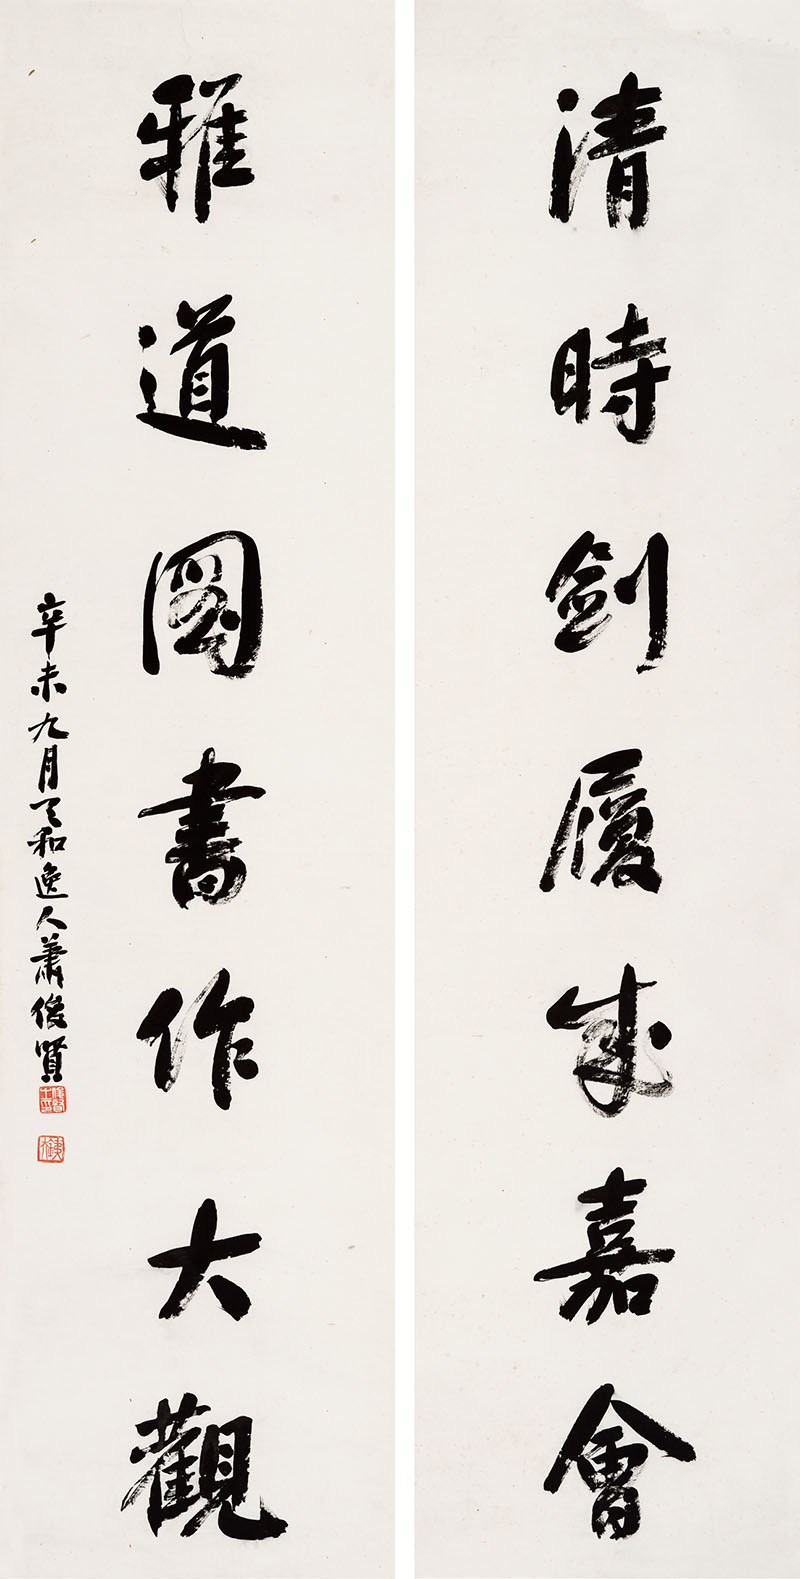 清時劍履成嘉會
雅道圖書作大觀
辛未九月天和逸人蕭俊賢